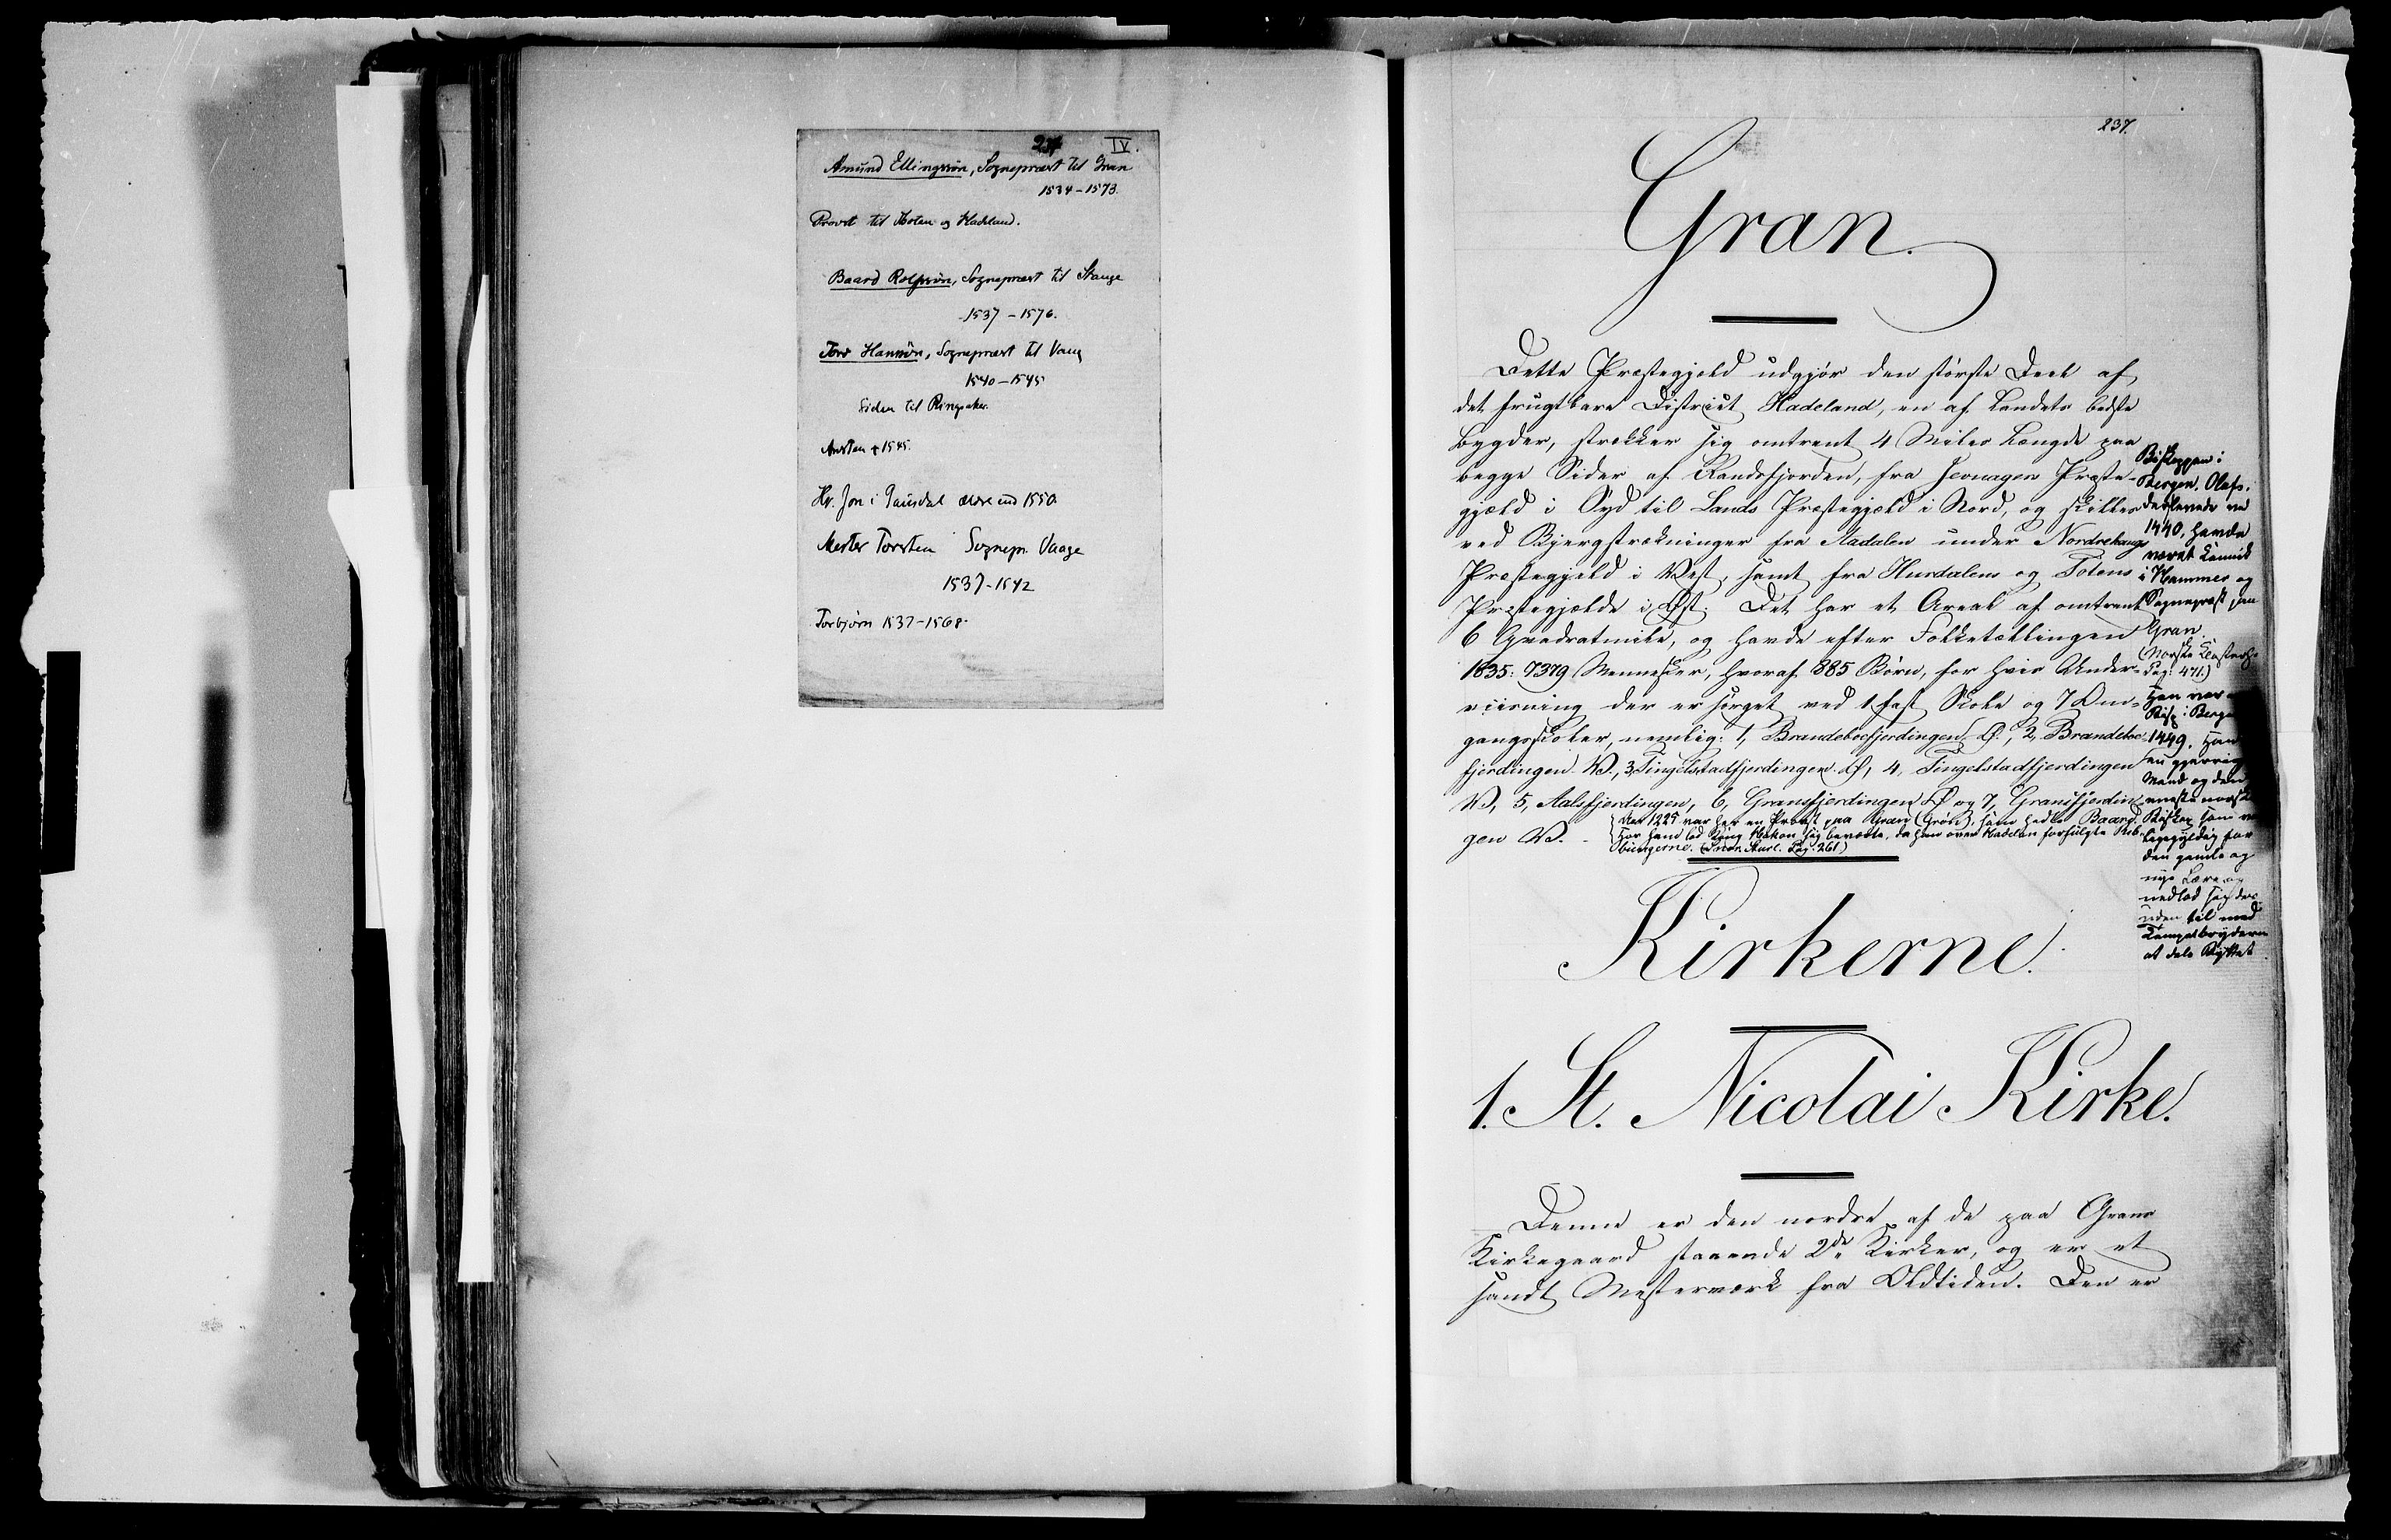 237 IV.
Amund Ellingssön, Sognepræst til Gran
1534-1573.
Provst til Toten og Hadeland.
Baard Rolfssön, Sognepræst til Stange
1537-1576.
Tord Hanssön, Sognepræst til Vang
1540-1545
Siden til Ringsaker.
Austen + 1545.
Hr. Jon i Gausdal ældre end 1550
Mester Torsten Sognepr. Vaage
1537-1542
Torbjörn 1537-1568.
237.
Gran.
Dette Præstegjeld udgjør den største Deel af
det frugtbare District Hadeland, en af Landets bedste
Bygder, strækker sig omtrent 4 Miles Længde paa
begge Sider af Randsfjorden, fra Jevnager Præste-
gjæld i Syd til Lands Præstegjæld i Nord, og skilles
ved Bjergstrækninger fra Aadalen under Nordrehaugs
Præstegjæld i Vest, samt fra Hurdalens og Totens
Præstegjælde i Øst. Det har et Areal af omtrent
6 Qvadratmile, og havde efter Folketællingen
1835: 7379 Mennesker, hvoraf 885 Børn, for hvis Under-
viisning der er sørget ved 1 fast Skole og 7 Om-
gangsskoler, nemlig: 1, Brandeboefjerdingen Ø., 2, Brandeboe-
fjerdingen V., 3, Tingelstadfjerdingen Ø, 4, Tingelstadfjerdingen
V, 5, Aalsfjerdingen, 6, Gransfjerdingen Ø og 7, Gransfjerdin-
gen V. -
Aar 1225 var her en Provst paa Gran (Gron), som hedte Baard.
Hos ham lod Kong Hakon sig beværte, da han over Hadelan forfulgte Rib-
bungerne. (Snor. Sturl. Pag. 261)
Biskoppen i
Bergen, Olaf,
der levede ved
1440, havde
været Kannik
i Hammer og
Sognepræst paa
Gran.
(Norske Klosterh.
Pag. 471.)
Han var
Bisp i Bergen
1449. Han
en gjerrig
Mand og den
eneste norske
Biskop som
ligegyldig for
den gamle og
nye Lære og
nedlod sig des-
uden til med
Tempelbryderne
at dele Byttet.
Kirkerne.
1. St. Nicolai Kirke.
Denne er den nordre af de paa Grans
Kirkegaard staaende 2de Kirker, og er et
sandt Mesterværk fra Oldtiden. Den er